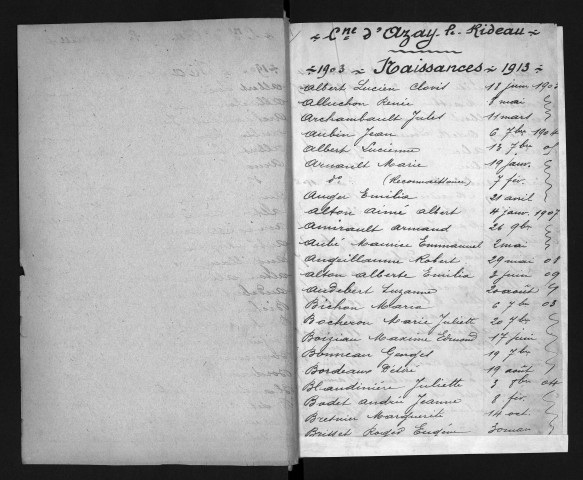 Cne d'Azay-le-Rideau
1903 Naissances 1913
Albert Lucien Clovis 18 juin 1903
Alluchon Renée 8 mai
Archambault Jules 11 mars
Aubin Jean 6 7bre 1904
Albert Lucienne 13 7bre 05
Arnault Marie 19 janv.
do (Reconnaissance) 7 fév.
Auger Emilia 21 avril
Alton Aimé Albert 4 janv. 1907
Amirault Armand 26 9bre
Aubé Maurice Emmanuel 2 mai
Anguillaume Robert 29 mai 08
Alton Alberte Emilia 3 juin 09
Audebert Suzanne 20 août
Bichon Maria 6 7bre 03
Bocheron Marie Juliette 20 7bre
Boizian Maxime Edmond 17 juin
Bonneau Georges 19 7bre
Bordeaux Désiré 19 août
Blandinière Juliette 3 8bre 04
Bodet Andrée Jeanne 8 fév.
Bretnier Marguerite 14 oct
Brisset Roger Eugène 30 mai